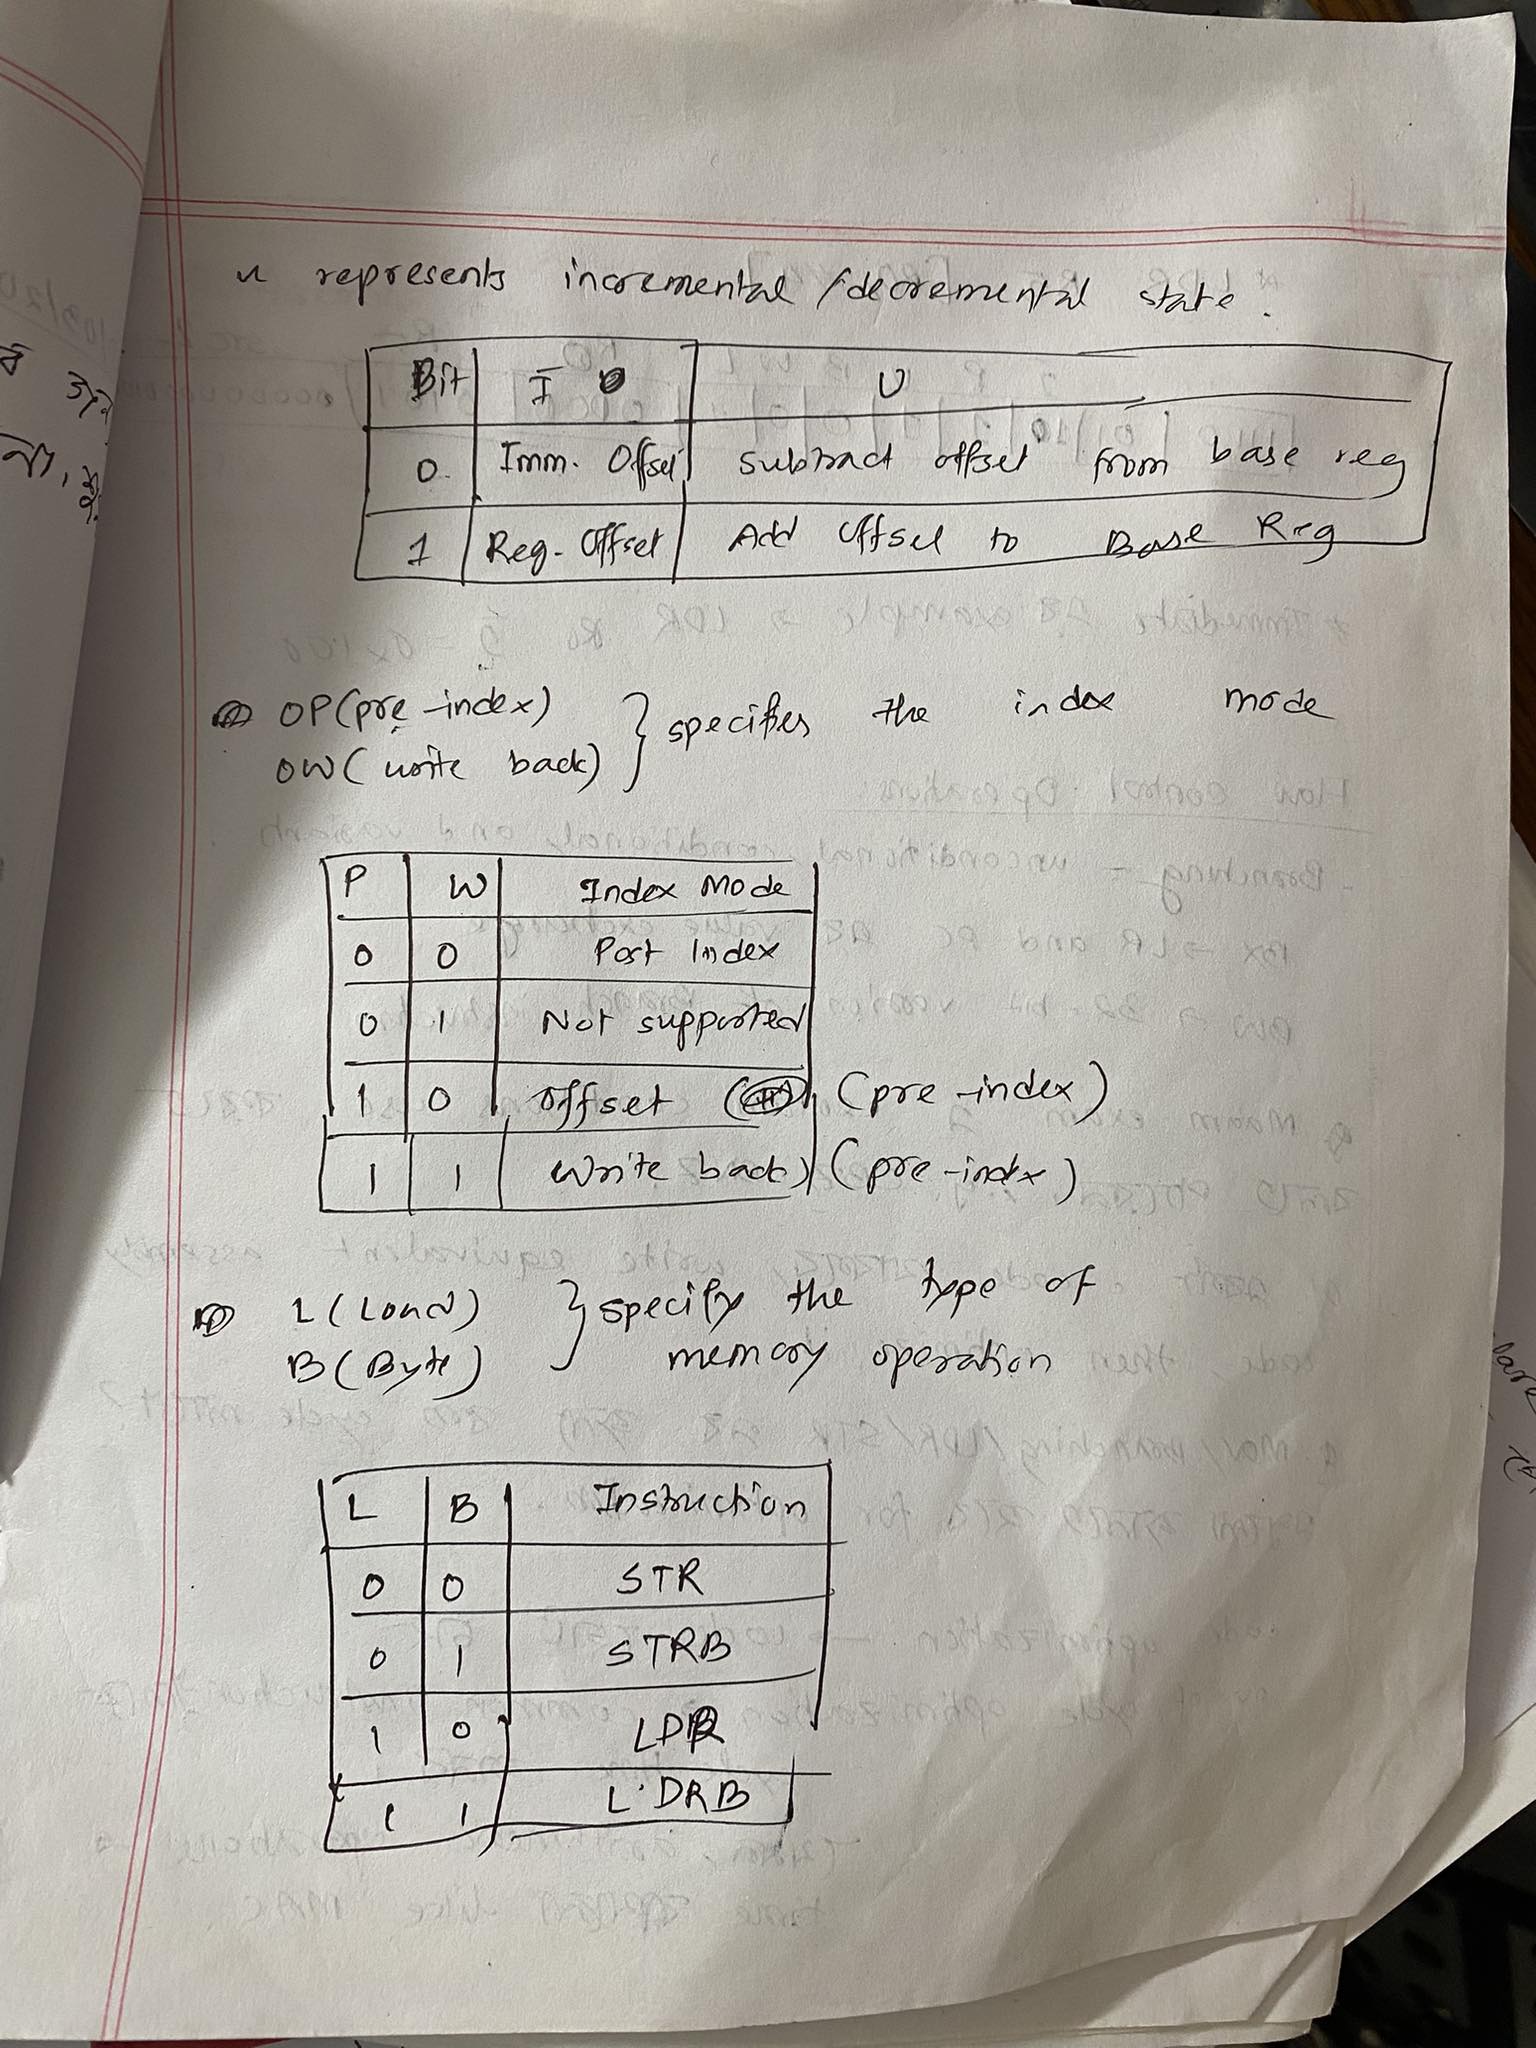 u represents incremental /decremental state.
Bit I U
0 Imm. Offset subtract offset from base reg
1 Reg. Offset Add Offset to Base Reg
OP(pre-index) } specifies the index mode
OW(write back)
P W Index Mode
0 0 Post Index
0 1 Not supported
1 0 Offset (pre-index)
1 1 Write back) (pre-index)
L (Load) } specify the type of
B (Byte) memory operation
L B Instruction
0 0 STR
0 1 STRB
1 0 LDR
1 1 LDRB